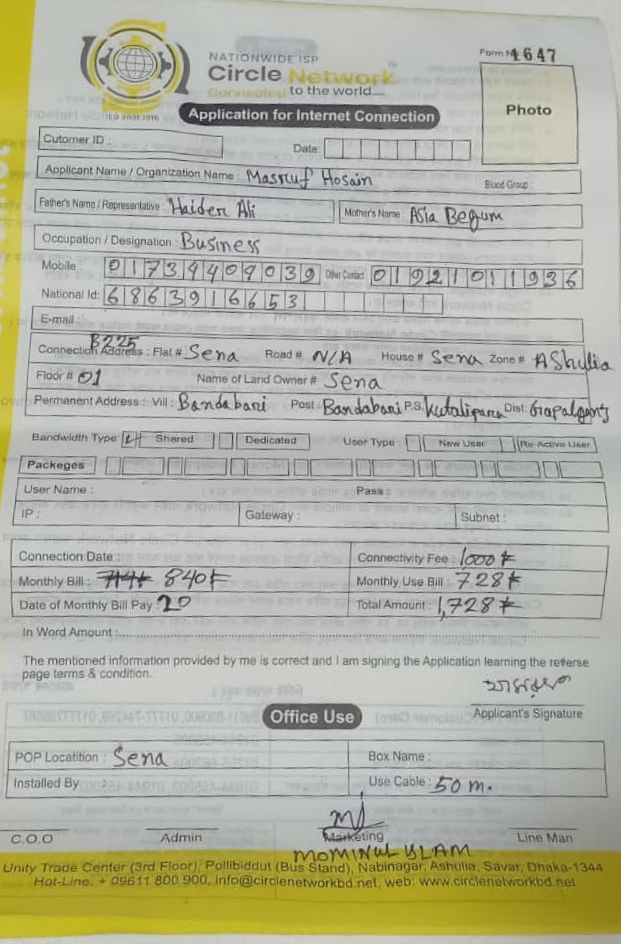 NATIONWIDE ISP
Circle Network
Connected to the world....
ISO 9001:2015
Form No 1647
Photo
Application for Internet Connection
Cutomer ID :
Date:
Applicant Name / Organization Name : Masruf Hosain
Blood Group :
Father's Name / Representative : Haider Ali
Mother's Name : Asia Begum
Occupation / Designation : Business
Mobile : 01734409039 Other Contact 01921011936
National Id: 6863916653
E-mail :
B225
Connection Address : Flat # Sena Road # N/A House # Sena Zone # AShulia
Floor # 01 Name of Land Owner # Sena
Permanent Address : Vill : Bandabari Post : Bandabari P.S. Kutalipara Dist: Gopalganj
Bandwidth Type Shared Dedicated User Type : New User Re-Active User
Packeges
User Name : Pass :
IP : Gateway : Subnet :
Connection Date : Connectivity Fee : 1000৳
Monthly Bill : 840৳ Monthly Use Bill : 728৳
Date of Monthly Bill Pay : 20 Total Amount : 1,728৳
In Word Amount :
The mentioned information provided by me is correct and I am signing the Application learning the reverse
page terms & condition.
Applicant's Signature
Office Use
POP Locatition : Sena Box Name :
Installed By : Use Cable : 50 m.
C.O.O Admin Marketing Line Man
MOMINUL ISLAM
Unity Trade Center (3rd Floor), Pollibiddut (Bus Stand), Nabinagar, Ashulia, Savar, Dhaka-1344
Hot-Line: + 09611 800 900, info@circlenetworkbd.net, web: www.circlenetworkbd.net